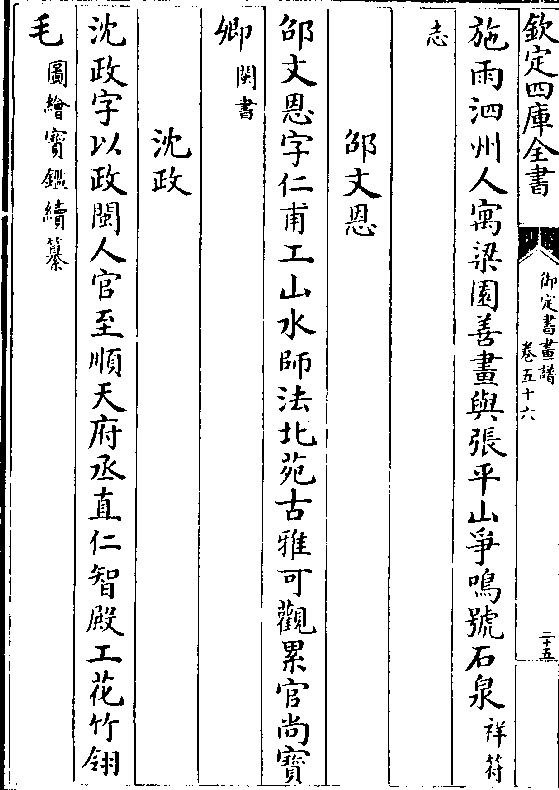 欽定四庫全書
御定書畫譜
卷五十六
二十五
施雨泗州人寓梁園善畫與張平山爭鳴號石泉祥符
志
邵文恩
邵文恩字仁甫工山水師法北苑古雅可觀累官尚寶
卿閩書
沈政
沈政字以政閩人官至順天府丞直仁智殿工花竹翎
毛圖繪寶鑑續纂